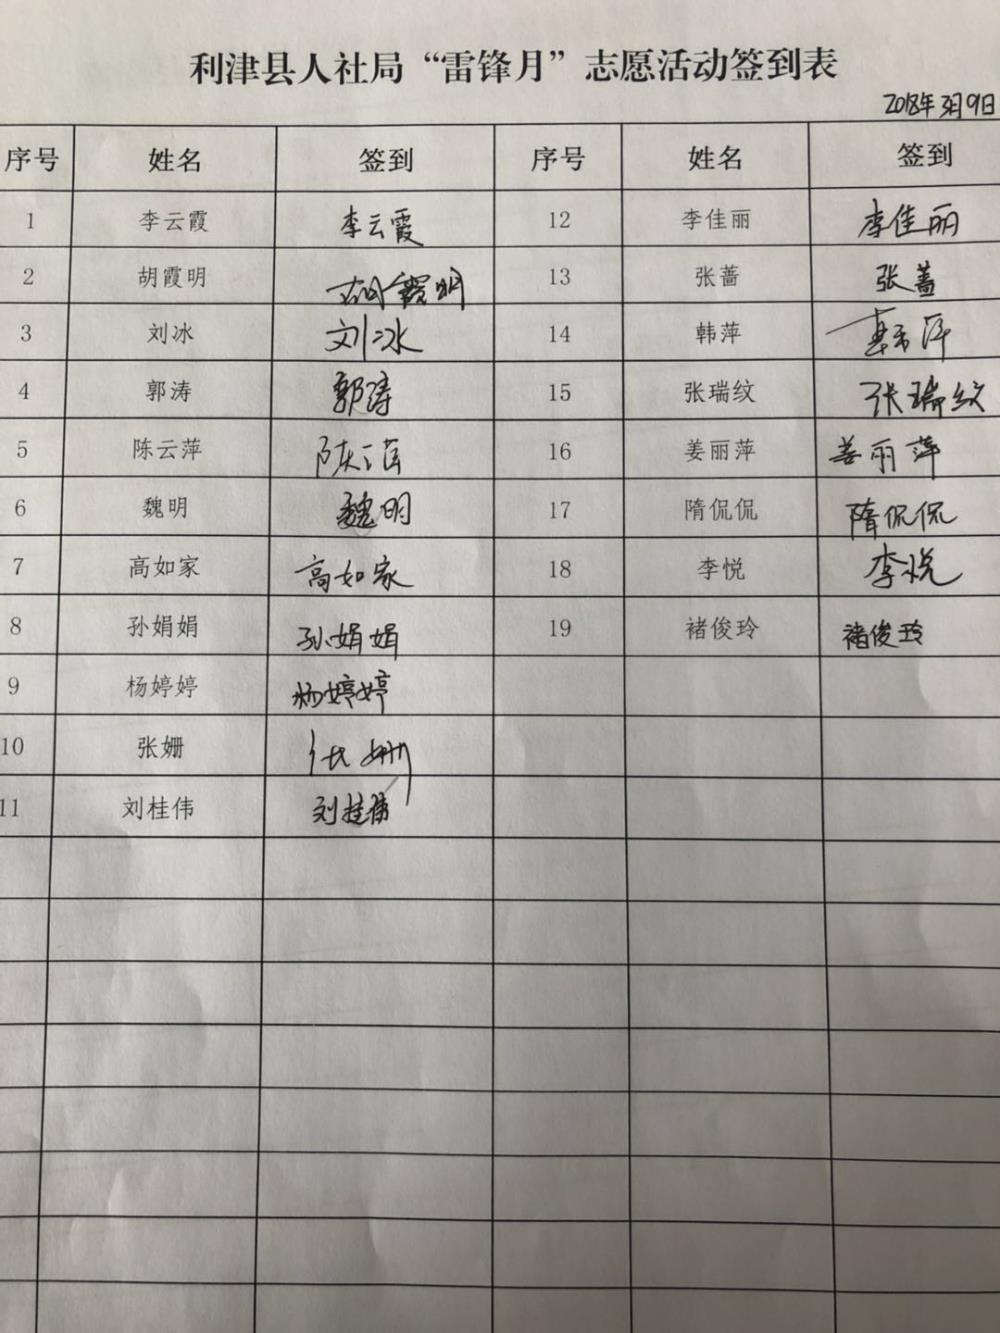 利津县人社局“雷锋月”志愿活动签到表
2018年3月9日
序号 姓名 签到 序号 姓名 签到
1 李云霞 李云霞 12 李佳丽 李佳丽
2 胡霞明 胡霞明 13 张蔷 张蔷
3 刘冰 刘冰 14 韩萍 韩萍
4 郭涛 郭涛 15 张瑞纹 张瑞纹
5 陈云萍 陈云萍 16 姜丽萍 姜丽萍
6 魏明 魏明 17 隋侃侃 隋侃侃
7 高如家 高如家 18 李悦 李悦
8 孙娟娟 孙娟娟 19 褚俊玲 褚俊玲
9 杨婷婷 杨婷婷
10 张姗 张姗
11 刘桂伟 刘桂伟